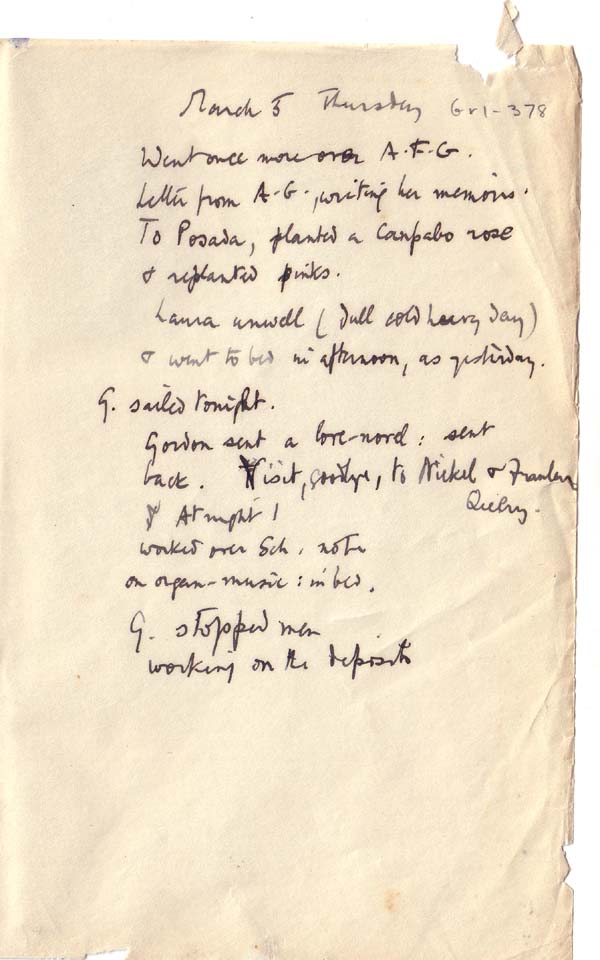 March 5 Thursday 6r1-378
Went once more over A.F.G.
Letter from A-G., writing her memoirs.
To Posada, planted a Canpabo rose
& replanted pinks.
Laura unwell (dull cold heavy day)
& went to bed in afternoon, as yesterday.
G. sailed tonight.
Gordon sent a love-novel: sent
back. Visit, goodbye, to Nickel &
At night I
worked over Sch. note
on organ-music: in bed.
G. stopped men
working on the deposito